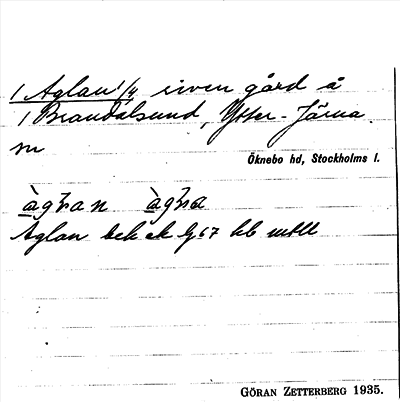 1 Aglan 1/4 riven gård å
1 Brandalsund, Ytter-Järna
m
Öknebo hd, Stockholms l.
àgnan àgna
Aglan bek ek 67 kb mtll
GÖRAN ZETTERBERG 1935.